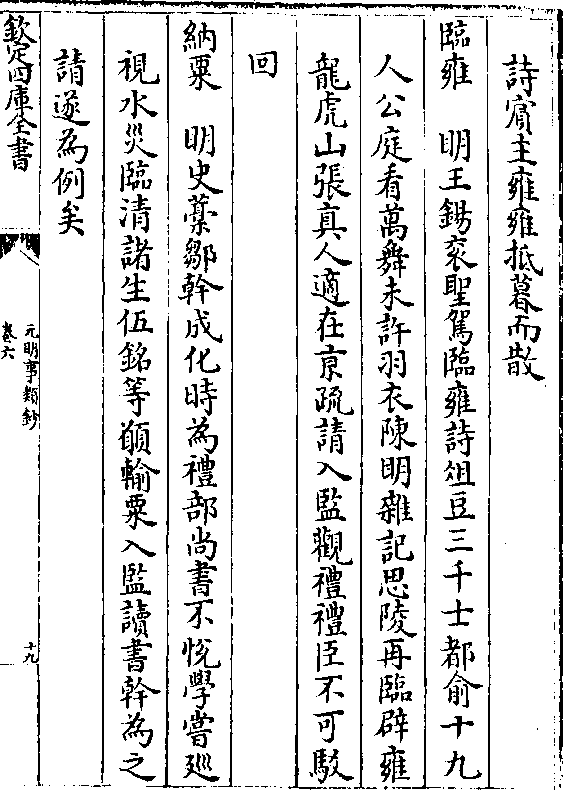 詩賓主雍雍抵暮而散
臨雍　明王錫衮聖駕臨雍詩俎豆三千士都俞十九
人公庭看萬舞未許羽衣陳明雜記思陵再臨辟雍
龍虎山張真人適在京疏請入監觀禮禮臣不可駮
回
納粟　明史藁鄒幹成化時為禮部尚書不悅學嘗廵
視水災臨清諸生伍銘等願輸粟入監讀書幹為之
請遂為例矣
欽定四庫全書
元明事類鈔
卷六
十九